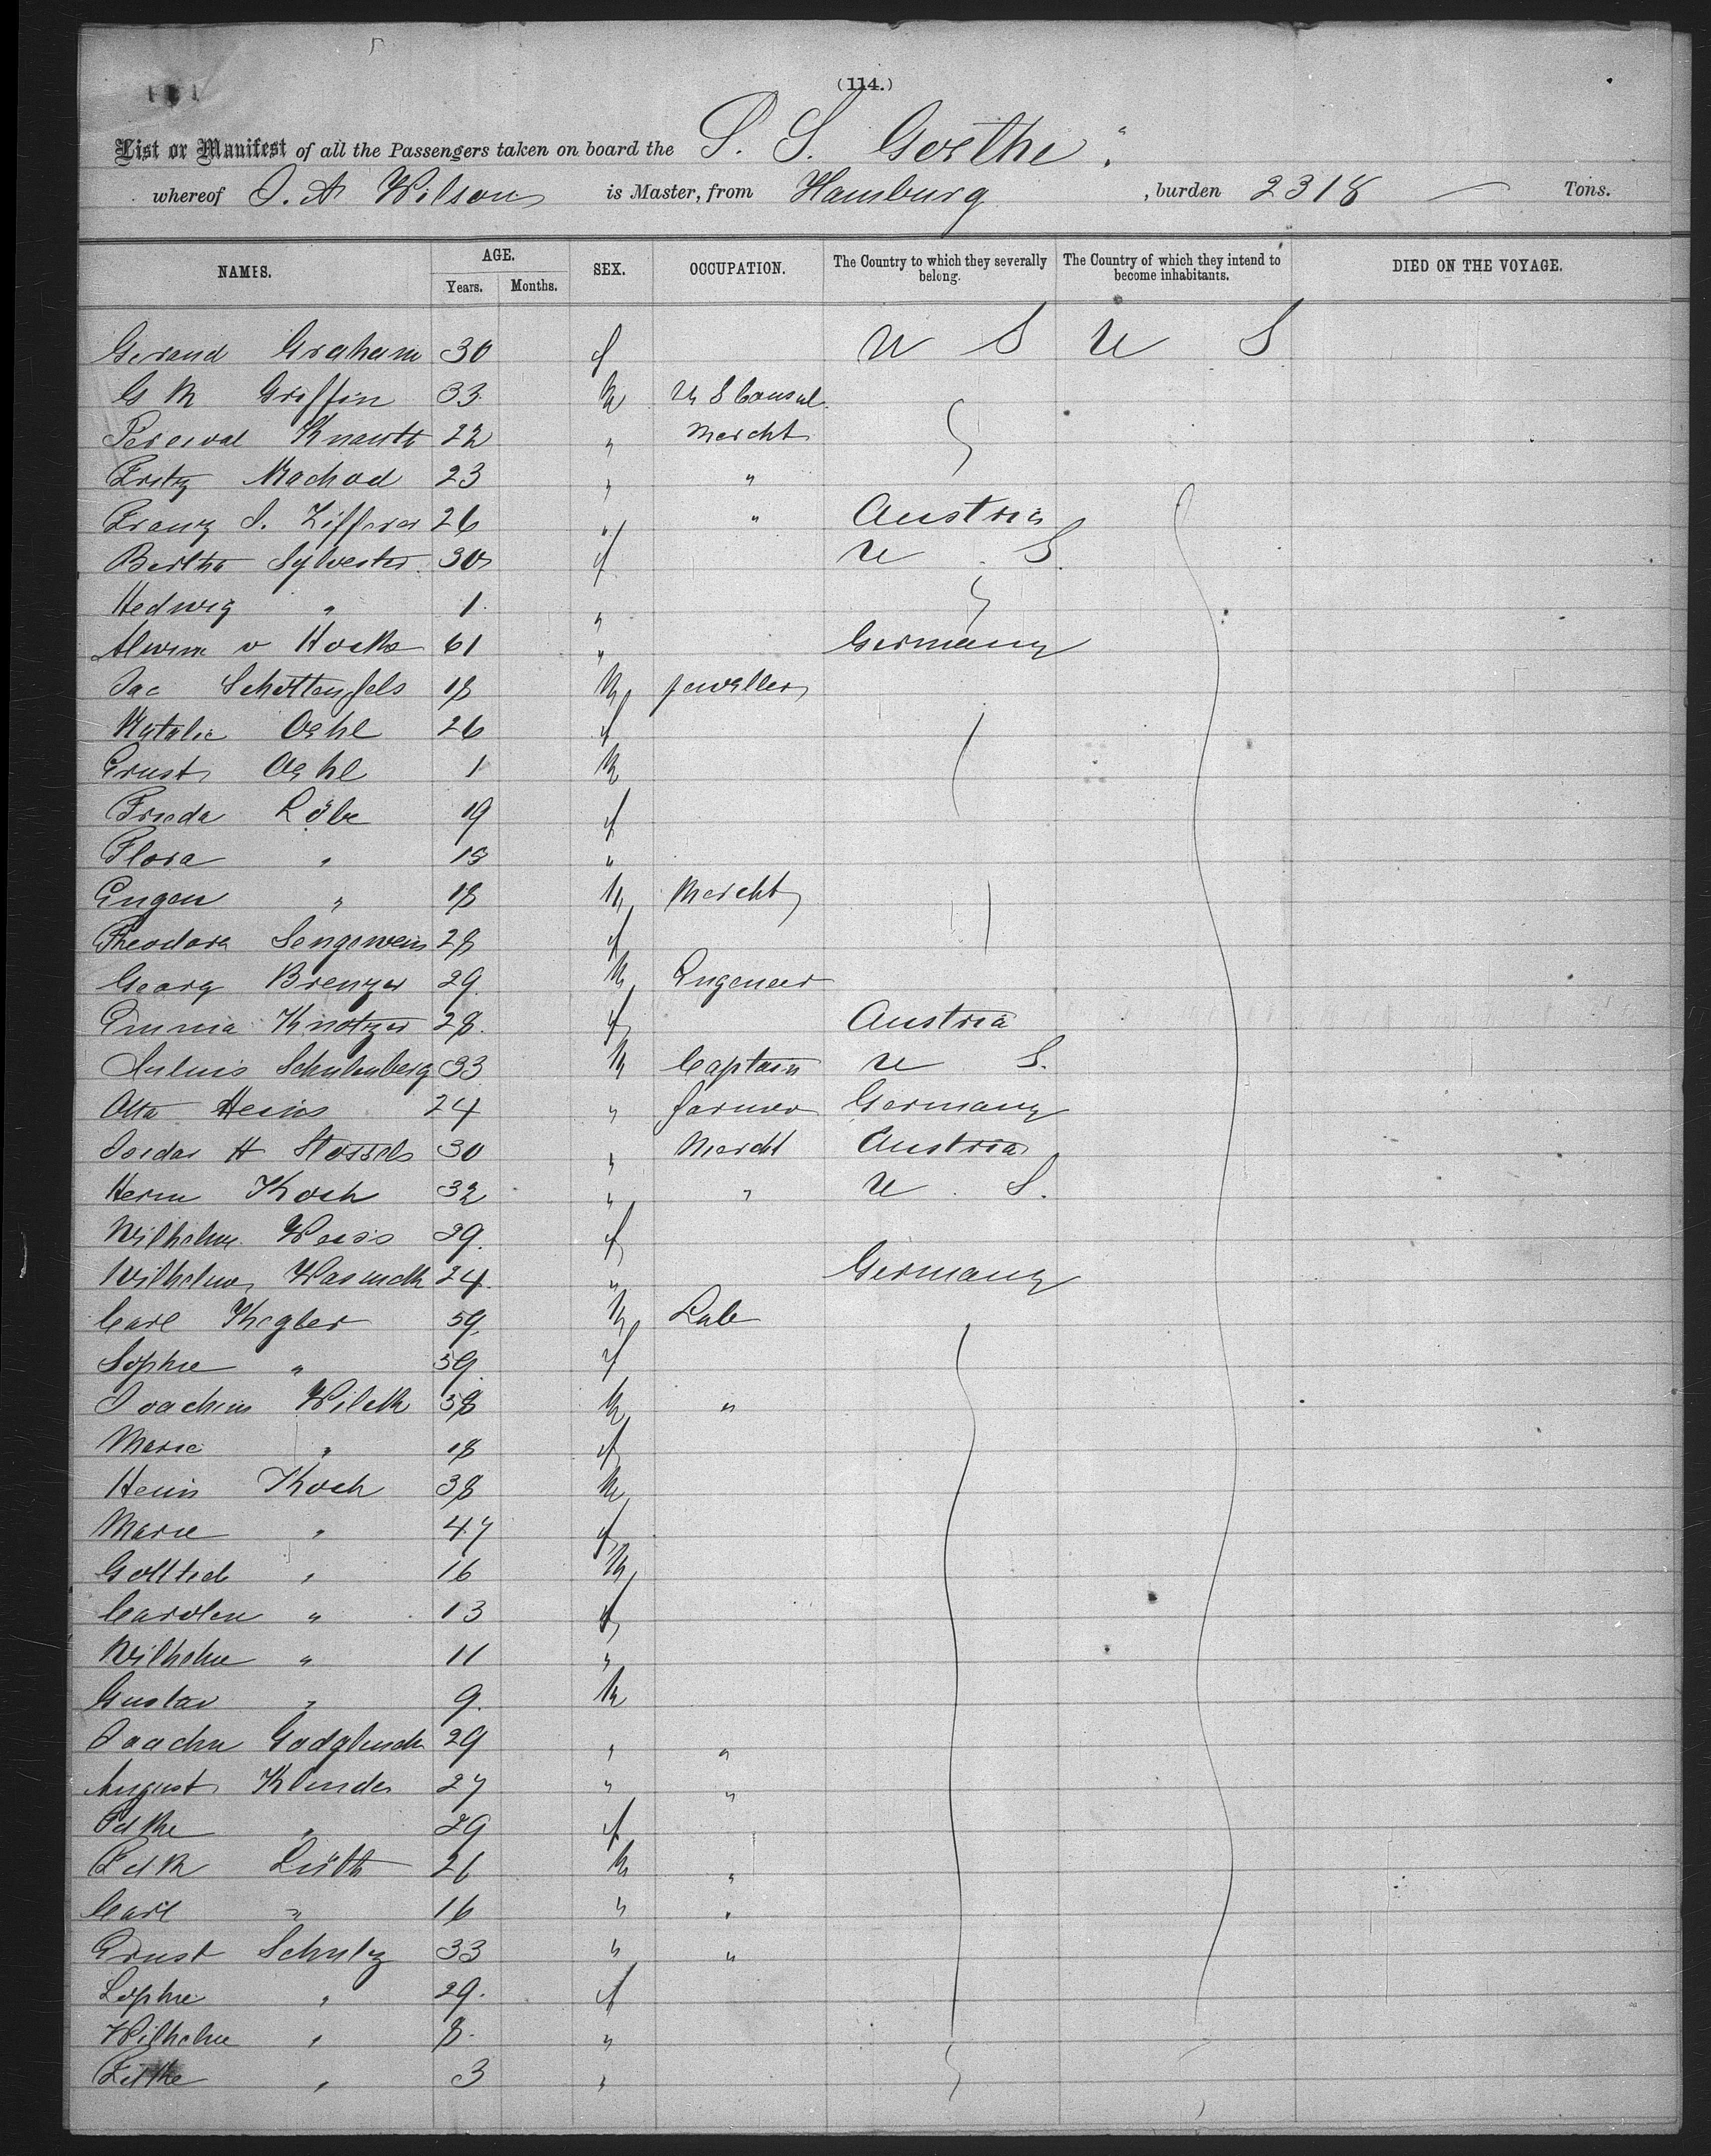 (114.)
List or Manifest of all the Passengers taken on board the S. S. Goethe"
whereof J. A Wilson is Master, from Hamburg , burden 2318 — Tons.
NAMES. AGE. SEX. OCCUPATION. The Country to which they severally belong. The Country of which they intend to become inhabitants. DIED ON THE VOYAGE.
Years. Months.
Gerand Graham 30 f U S U S
G M Griffin 33 M U S Consul
Percival Knauth 22 " Mercht
Fritz Machod 23 " "
Franz S. Zifferer 26 " " Austria
Bertha Sylvester 30 f U S.
Hedwig " 1 "
Alwine v Hocks 61 " Germany
Jac Schottenfels 18 M Jeweller
Natalie Oehl 26 f
Ernst Oehl 1 M
Frieda Löbe 19 f
Flora " 18 "
Eugen " 18 M Mercht
Theodora Sengewein 28 f
Georg Brenzer 29 M Engeneer
Emma Knotzer 28 f Austria
Julius Schulenberg 33 M Captain U S.
Otto Heins 24 " farmer Germany
H Stossels 30 " Mercht Austria
Herm Koch 32 " " U S.
Wilhelm Weiss 29 f
Wilhelm Wasmuth 24 " Germany
Carl Kegler 59 M Lab
Sophie " 59 f
Joachim Wilcth 58 M "
Marie " 18 f
Heins Koch 38 M
Marie " 47 f
Gottlieb " 16 M
Carolin " 13 f
Wilhelm " 11 "
Gustav " 9 M
Joachm 29 " "
August Klinder 27 " "
" 29 f
Lüth 26 M "
Carl " 16 " "
Ernst Schultz 33 " "
Sophie " 29 f
Wilhelm " 8 "
" 3 "